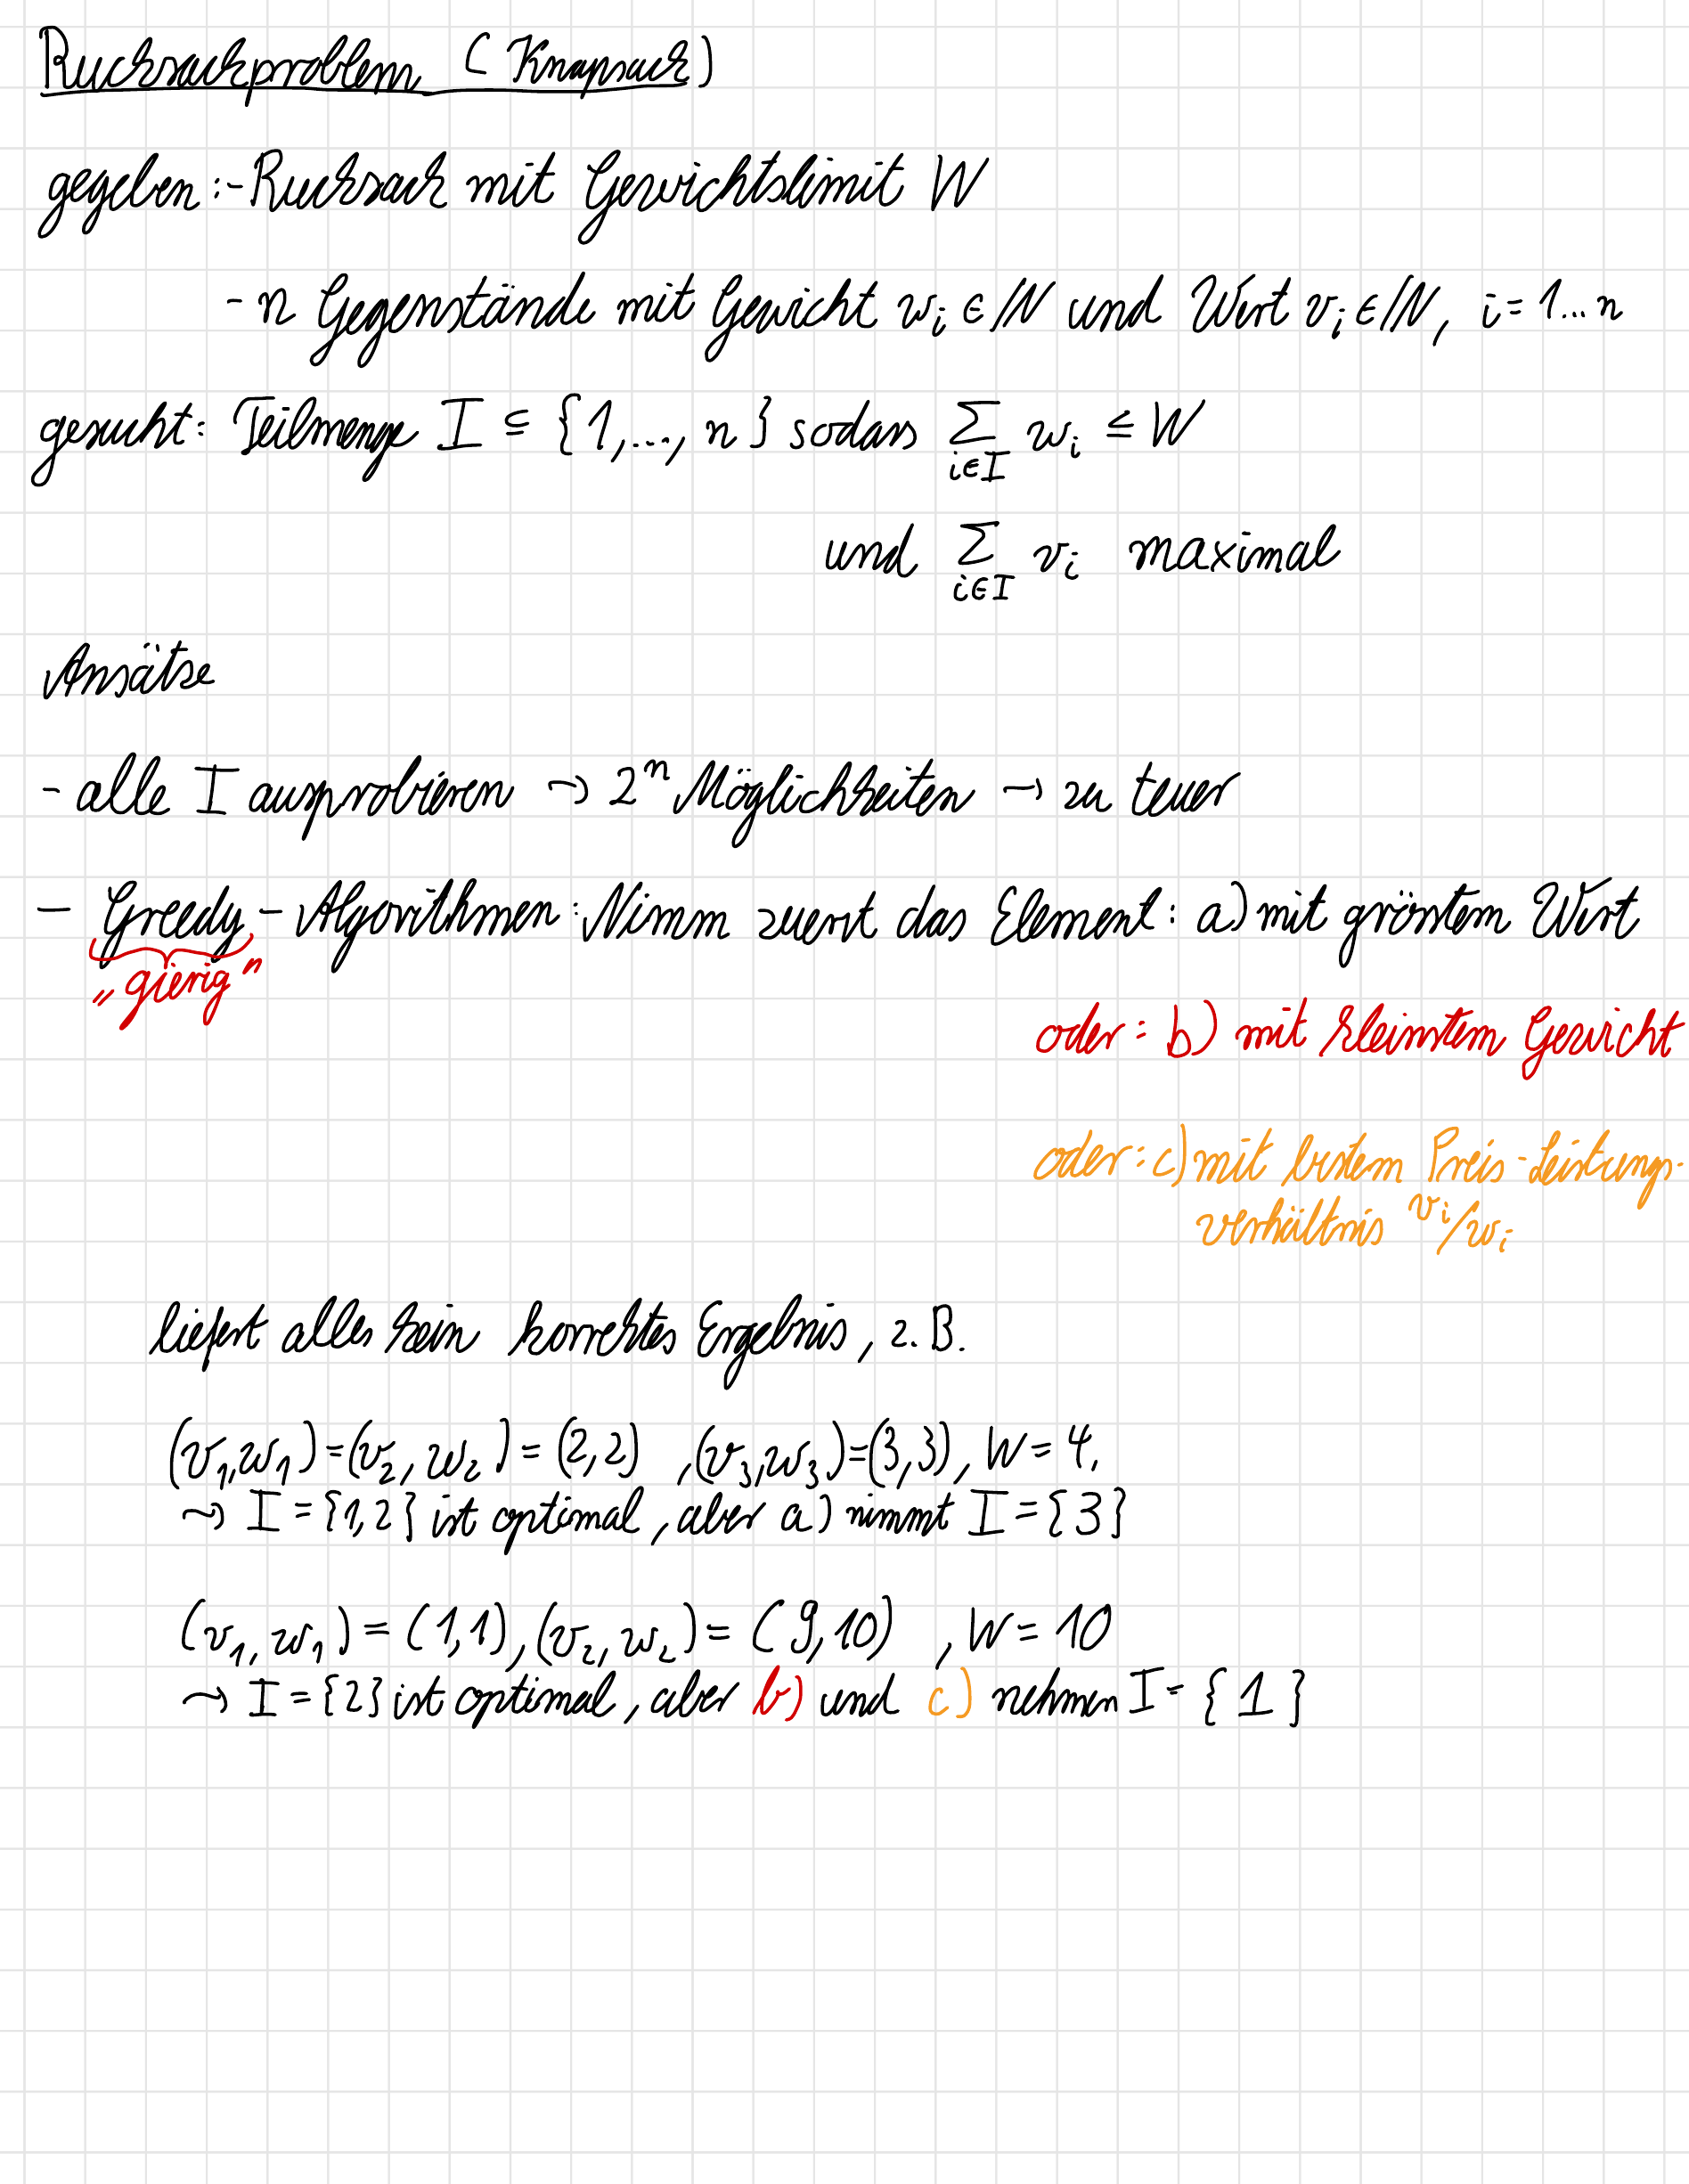 Rucksackproblem (Knapsack)
gegeben: - Rucksack mit Gewichtslimit W
- n Gegenstände mit Gewicht wᵢ ∈ ℕ und Wert vᵢ ∈ ℕ, i = 1...n
gesucht: Teilmenge I ⊆ {1,..., n} sodass ∑_{i∈I} wᵢ ≤ W
und ∑_{i∈I} vᵢ maximal
Ansätze
- alle I ausprobieren → 2ⁿ Möglichkeiten → zu teuer
- Greedy - Algorithmen: Nimm zuerst das Element: a) mit grösstem Wert
„gierig“
oder: b) mit kleinstem Gewicht
oder: c) mit bestem Preis-Leistungs-
verhältnis vᵢ/wᵢ
liefert alles kein korrektes Ergebnis, z.B.
(v₁,w₁)=(v₂,w₂)=(2,2) ,(v₃,w₃)=(3,3), W=4,
⇝ I={1,2} ist optimal, aber a) nimmt I={3}
(v₁,w₁)=(1,1),(v₂,w₂)=(9,10) ,W=10
⇝ I={2} ist optimal, aber b) und c) nehmen I={1}